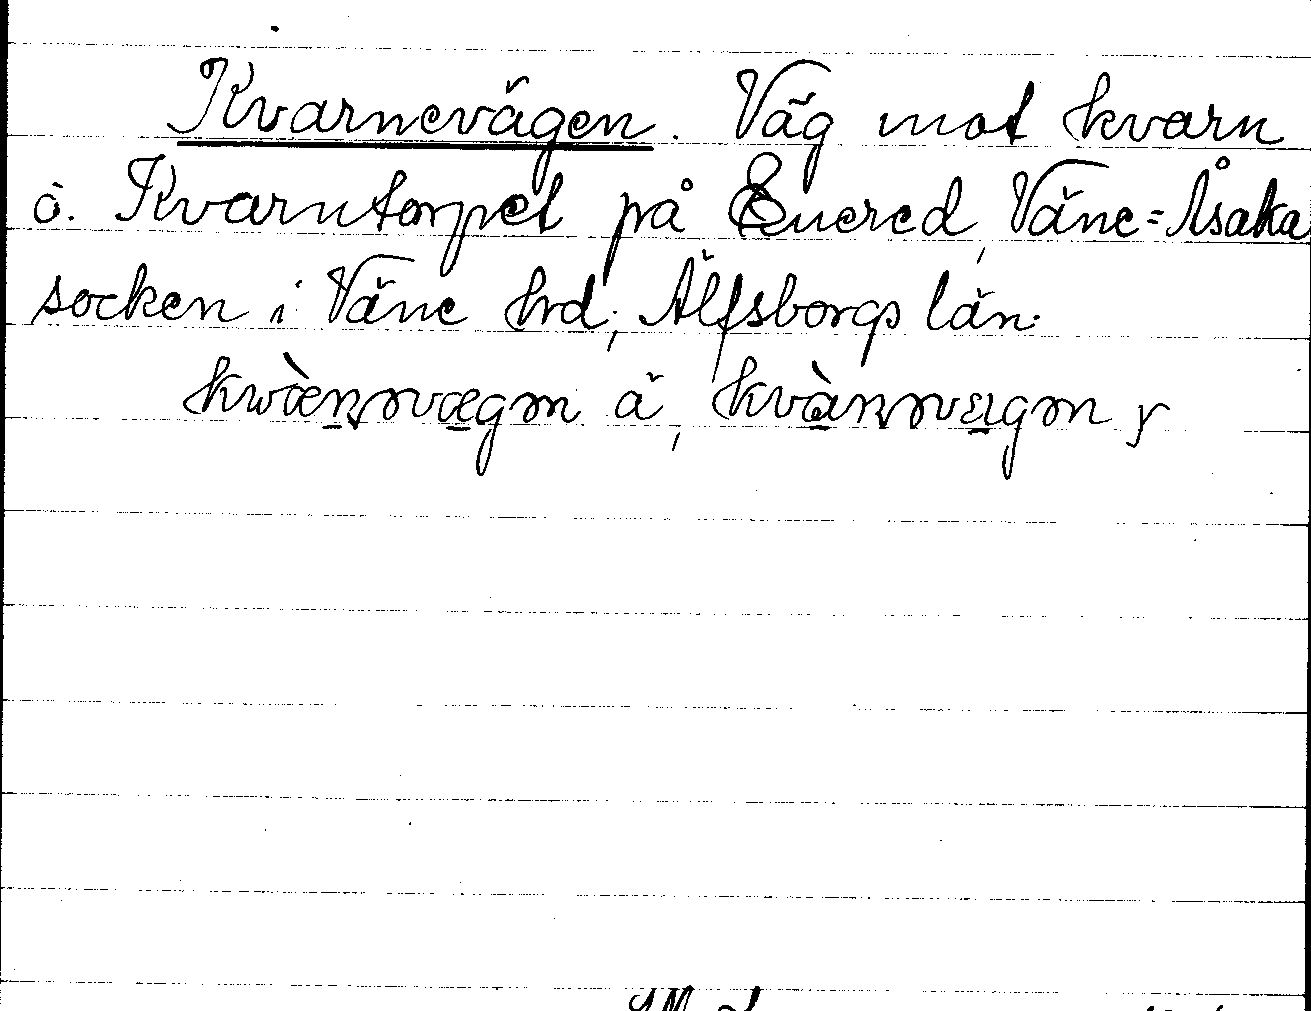 Kvarnevägen. Väg mot kvarn
ö. Kvarntorpet på Enered, Väne=Åsaka
socken i Väne hrd, Älfsborgs län.
kwàennvægm ä, kvànnvagm y